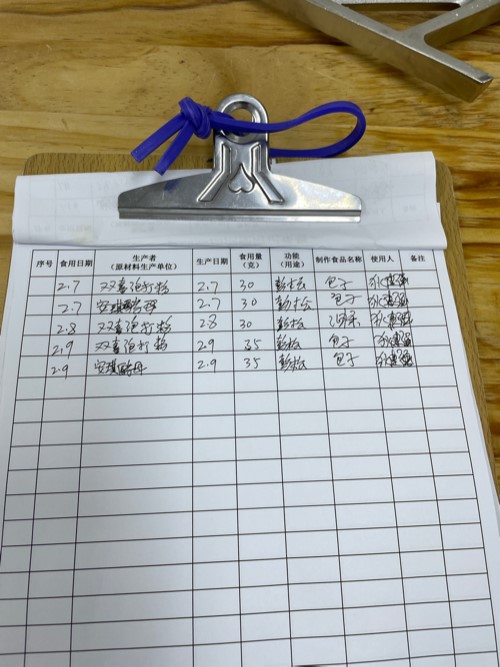 序号 食用日期 生产者（原材料生产单位） 生产日期 食用量（克） 功能（用途） 制作食品名称 使用人 备注
2.7 双喜泡打粉 2.7 30 彭松 包子
2.7 安琪酵母 2.7 30 彭松 包子
2.8 双喜泡打粉 2.8 30 彭松
2.9 双喜泡打粉 2.9 35 彭松 包子
2.9 安琪酵母 2.9 35 彭松 包子